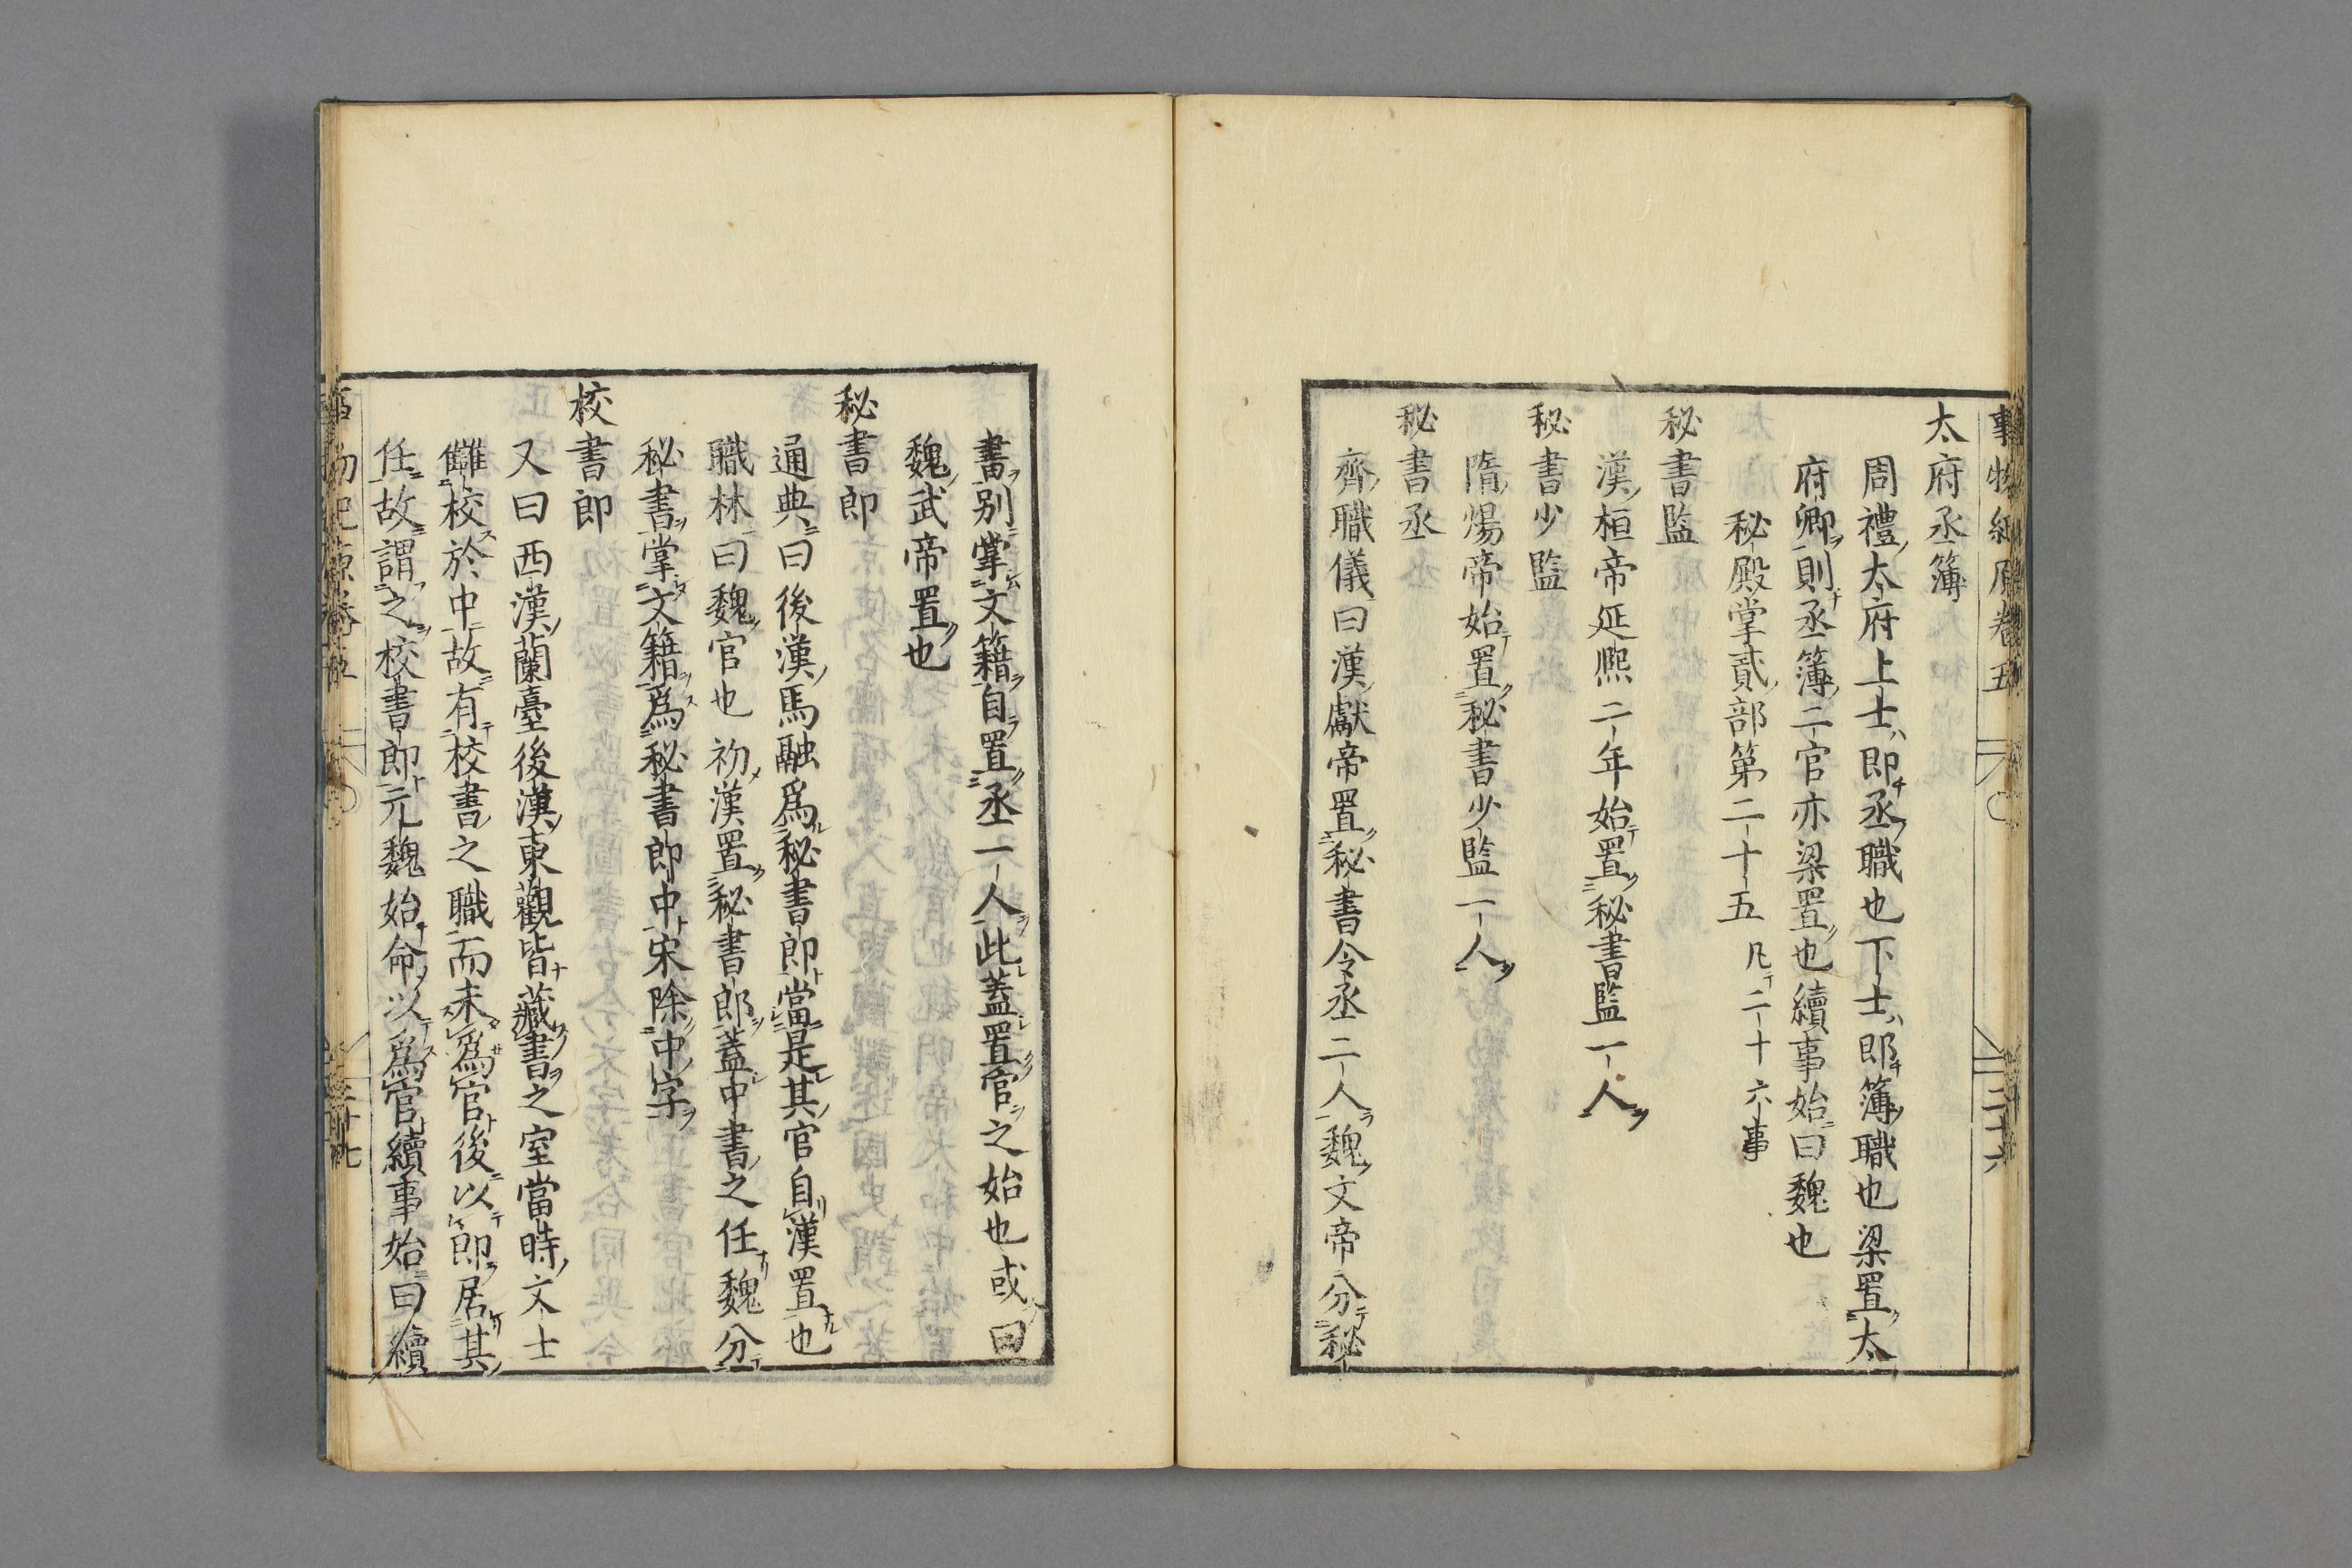 太府丞簿
周禮太府上士即丞職也下士即簿職也梁置太
府卿則丞簿二官亦梁置也續事始曰魏也
秘殿掌貳部第二十五 凡二十六事
秘書監
漢桓帝延熈二年始置秘書監一人
秘書少監
隋煬帝始置秘書少監一人
秘書丞
齊職儀曰漢獻帝置秘書令丞二人魏文帝分秘
書別掌文籍自置丞一人此蓋置官之始也或曰
魏武帝置也
秘書郎
通典曰後漢馬融爲秘書郎當是其官自漢置也
職林曰魏官也初漢置秘書郎蓋中書之任魏分
秘書掌文籍爲秘書郎中宋除中字
校書郎
又曰西漢蘭臺後漢東觀皆藏書之室當時文士
讎校於中故有校書之職而未爲官後以郎居其
任故謂之校書郎元魏始命以爲官續事始曰續